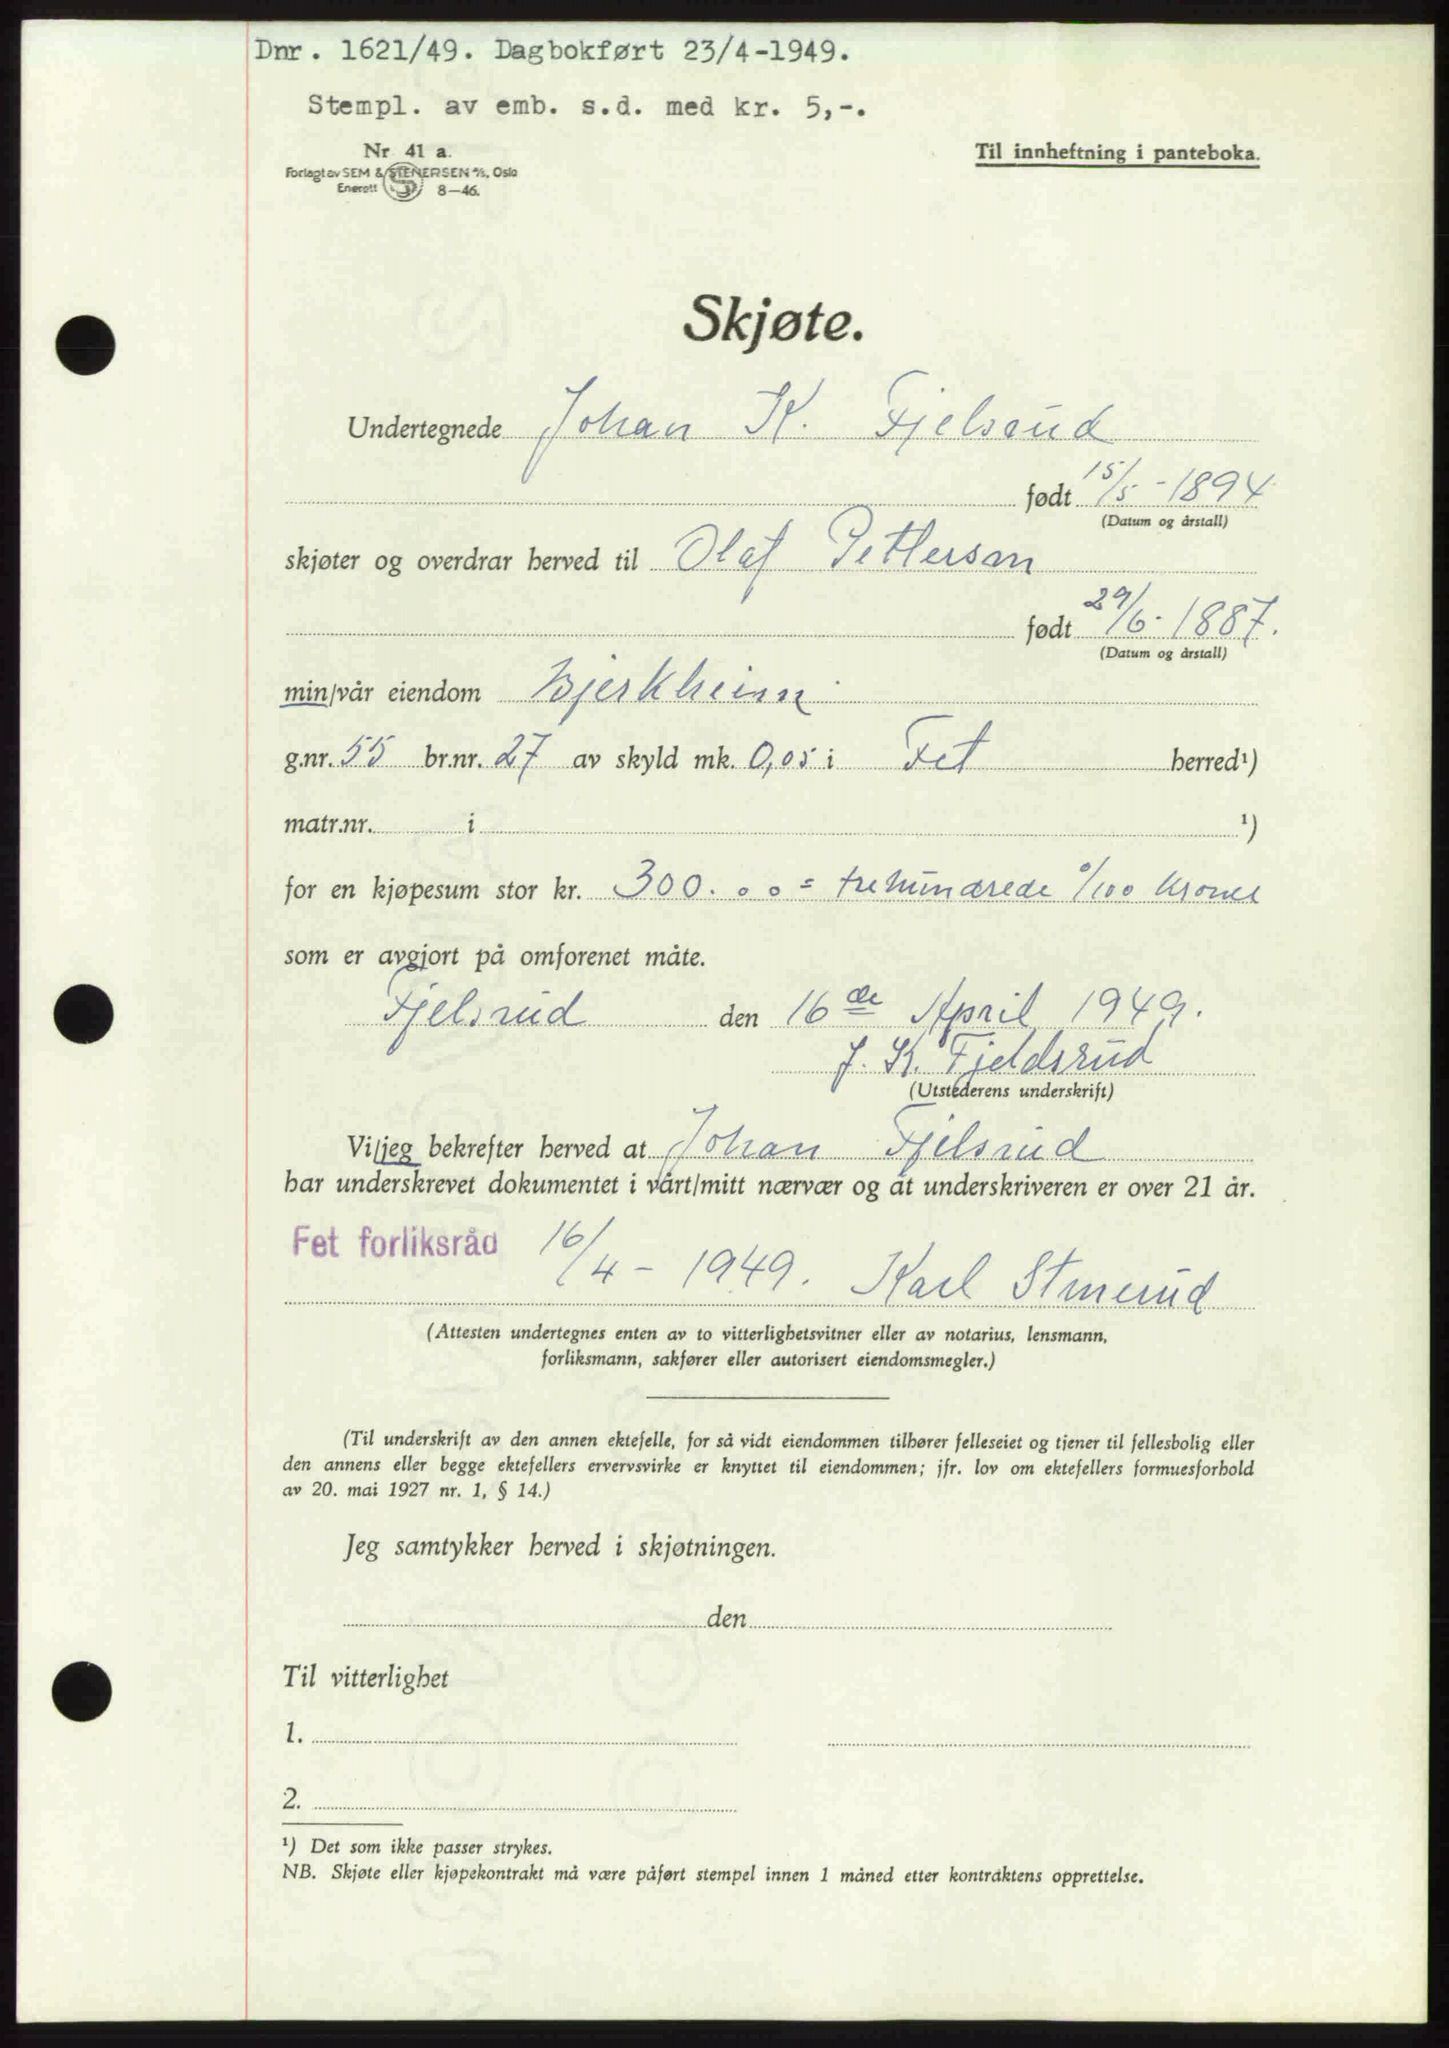 Dnr. 1621/49. Dagbokført 23/4-1949.
Stempl. av emb. s.d. med kr. 5,-.
Nr 41 a.
Til innheftning i panteboka.
Forlagt av SEM & STENERSEN A/S, Oslo
Enerett S 8-46.
Skjøte.
Undertegnede Johan K. Fjelsrud
født 15/5 - 1894
(Datum og årstall)
skjøter og overdrar herved til Olaf Petterson
født 29/6 - 1887.
(Datum og årstall)
min/vår eiendom Bjerkheim
g.nr. 55 br.nr. 27 av skyld mk. 0,05 i Fet herred¹)
matr.nr. i ¹)
for en kjøpesum stor kr. 300.00 = trehundrede 0/100 kroner
som er avgjort på omforenet måte.
Fjelsrud den 16de April 1949.
J. K. Fjeldsrud
(Utstederens underskrift)
Vi/jeg bekrefter herved at Johan Fjelsrud
har underskrevet dokumentet i vårt/mitt nærvær og at underskriveren er over 21 år.
Fet forliksråd 16/4 - 1949. Karl
(Attesten undertegnes enten av to vitterlighetsvitner eller av notarius, lensmann,
forliksmann, sakfører eller autorisert eiendomsmegler.)
(Til underskrift av den annen ektefelle, for så vidt eiendommen tilhører felleseiet og tjener til fellesbolig eller
den annens eller begge ektefellers ervervsvirke er knyttet til eiendommen; jfr. lov om ektefellers formuesforhold
av 20. mai 1927 nr. 1, § 14.)
Jeg samtykker herved i skjøtningen.
den
Til vitterlighet
1.
2.
¹) Det som ikke passer strykes.
NB. Skjøte eller kjøpekontrakt må være påført stempel innen 1 måned etter kontraktens opprettelse.